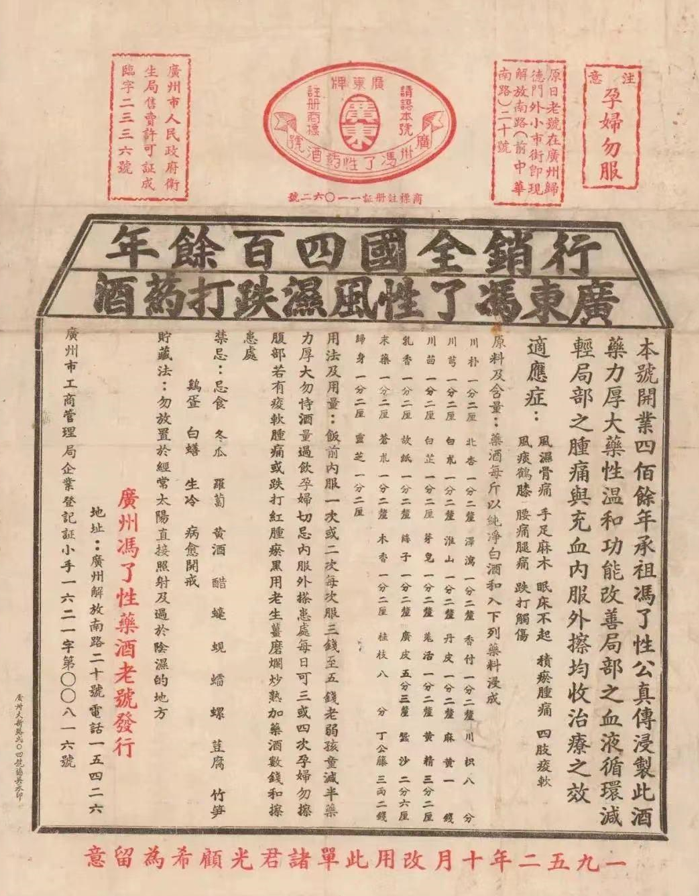 注意
孕婦勿服
原日老號在廣州歸
德門外小市街卽現
解放南路(前中華
南路)二十號
廣東牌
請認本號
註册商標
廣東
廣州馮了性葯酒號
商標註册証一一〇六二號
廣州市人民政府衛
生局售賣許可証成
臨字二三三六號
行銷全國四百餘年
廣東馮了性風濕跌打葯酒
本號開業四佰餘年承祖馮了性公真傳浸製此酒
藥力厚大藥性温和功能改善局部之血液循環減
輕局部之腫痛與充血内服外擦均收治療之效
適應症：
風濕骨痛 手足麻木 眠床不起 積瘀腫痛 四肢痠軟
風痰鶴膝 腰痛腿痛 跌打觸傷
原料及含量：藥酒每斤以純淨白酒和入下列藥料浸成
川朴 一分二厘 北杏 一分二釐 澤瀉 一分二釐 香付 一分二釐 川枳 八分
川芎 一分二厘 白朮 一分二釐 淮山 一分二釐 丹皮 一分二釐 麻黃 一錢
一分二厘 白芷 一分二釐 一分二釐 羌活 一分二釐 黃精 三分二厘
乳香 一分二厘 故紙 一分二釐 一分二釐 廣皮 五分三釐 蠶沙 二分六厘
沒藥 一分二厘 蒼朮 一分二釐 木香 一分二釐 桂枝 八分 丁公藤 三兩二錢
歸身 一分二厘 靈芝 一分二厘
用法及用量：飯前内服一次或二次每次服三錢至五錢老弱孩童減半藥
力厚大勿恃酒量過飲孕婦切忌内服外搽患處每日可三或四次孕婦勿擦
腹部若有痠軟腫痛或跌打紅腫瘀黑用老生薑磨爛炒熱加藥酒數錢和擦
患處
禁忌：忌食 冬瓜 羅蔔 黄酒 醋 蟛 蜆 蟮 螺 荳腐 竹笋
鷄蛋 白鱔 生冷 病愈開戒
貯藏法：勿放置於經常太陽直接照射及過於陰濕的地方
廣州馮了性藥酒老號發行
地址：廣州解放南路二十號 電話一五四二六
廣州市工商管理局企業登記証小手一六二一字第〇〇八一六號
一九五二年十月改用此單諸君光顧希為留意